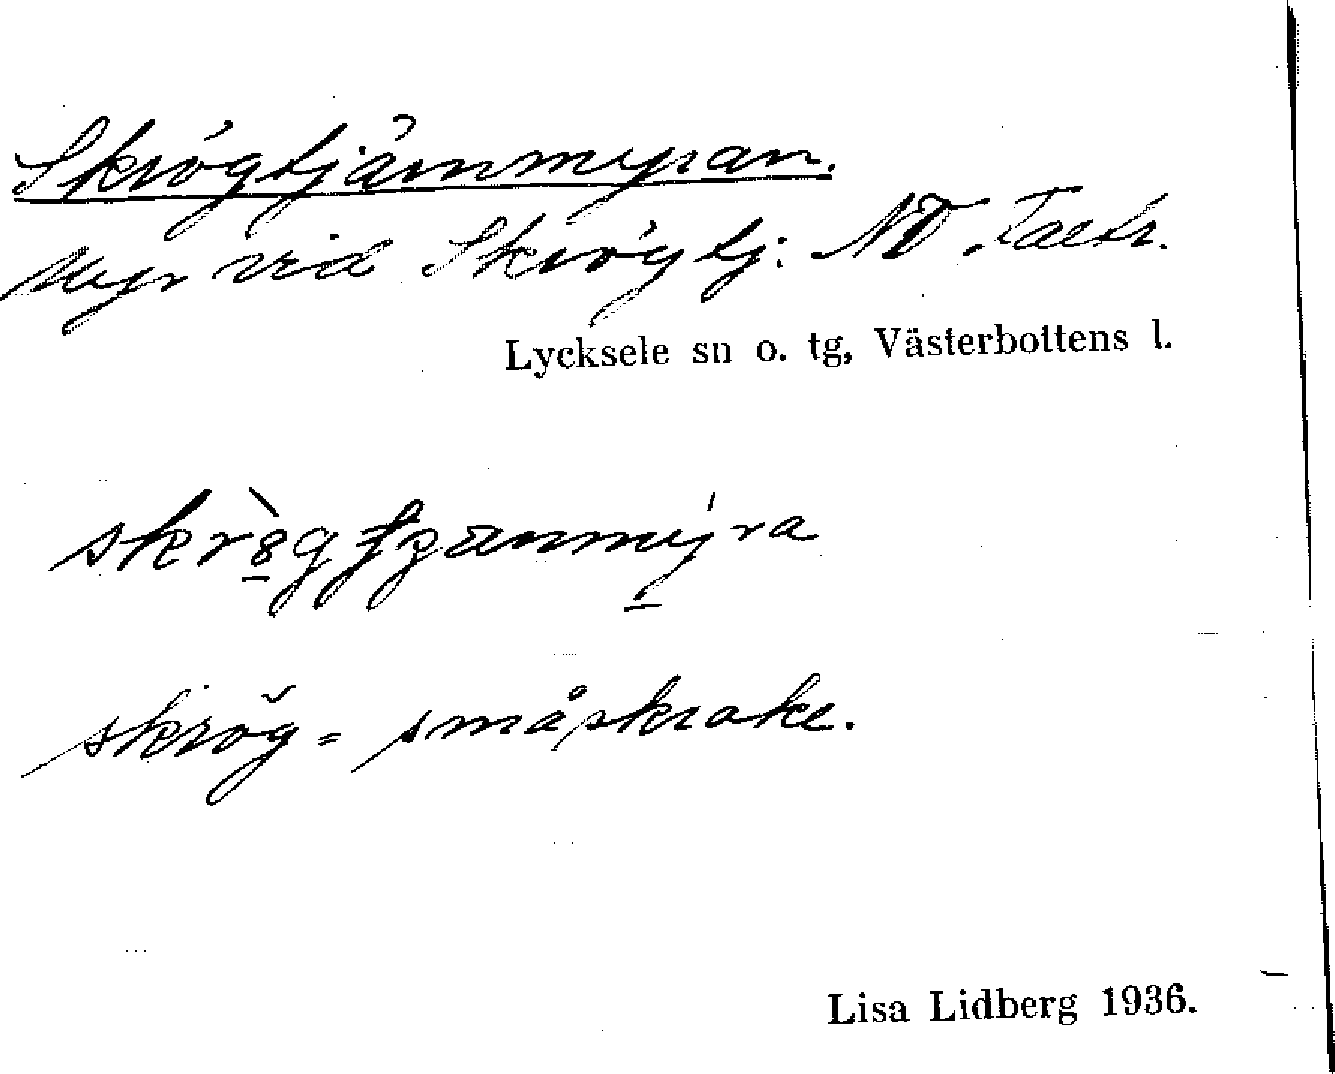 Skrögtjärnmyran.
Myr vid Skrögtj. NO
Lycksele sn o. tg, Västerbottens l.
skrög = småskrake.
Lisa Lidberg 1936.